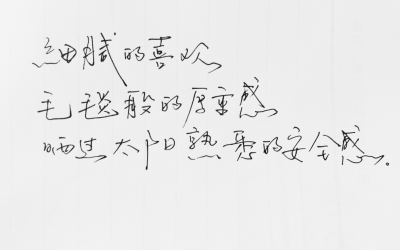 細膩的喜欢
毛毯般的厚重感
晒过太阳熟悉的安全感.